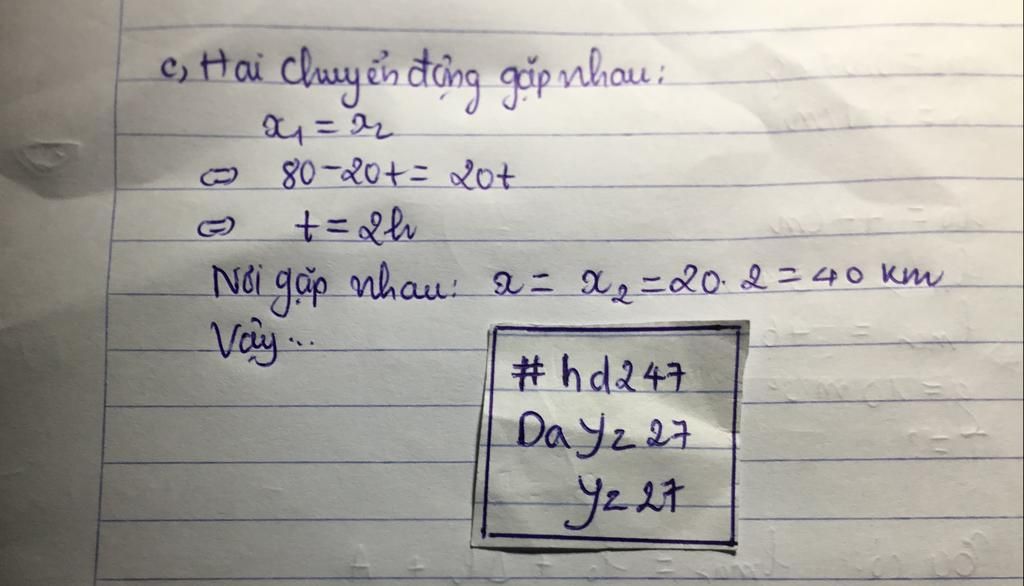 c, Hai chuyển động gặp nhau:
x₁ = x₂
⇔ 80 - 20t = 20t
⇔ t = 2h
Nơi gặp nhau: x = x₂ = 20. 2 = 40 km
Vậy...
# hd247
Da yz 27
yz 27